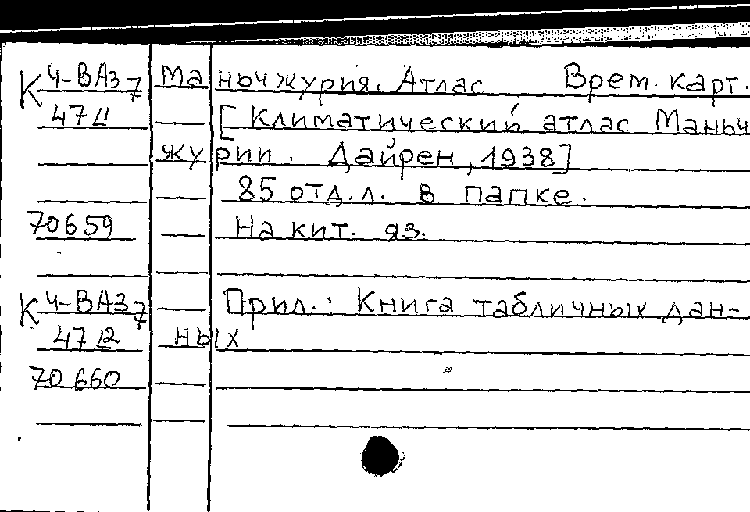 К Ч-ВАЗ 7 Маньчжурия. Атлас Врем. карт.
47 [Климатический атлас Маньч
журии. Дайрен, 1938]
85 отд. л. в папке.
70659 На кит. яз.
К Ч-ВАЗ 7 Прил.: Книга табличных дан-
47 ных
70660